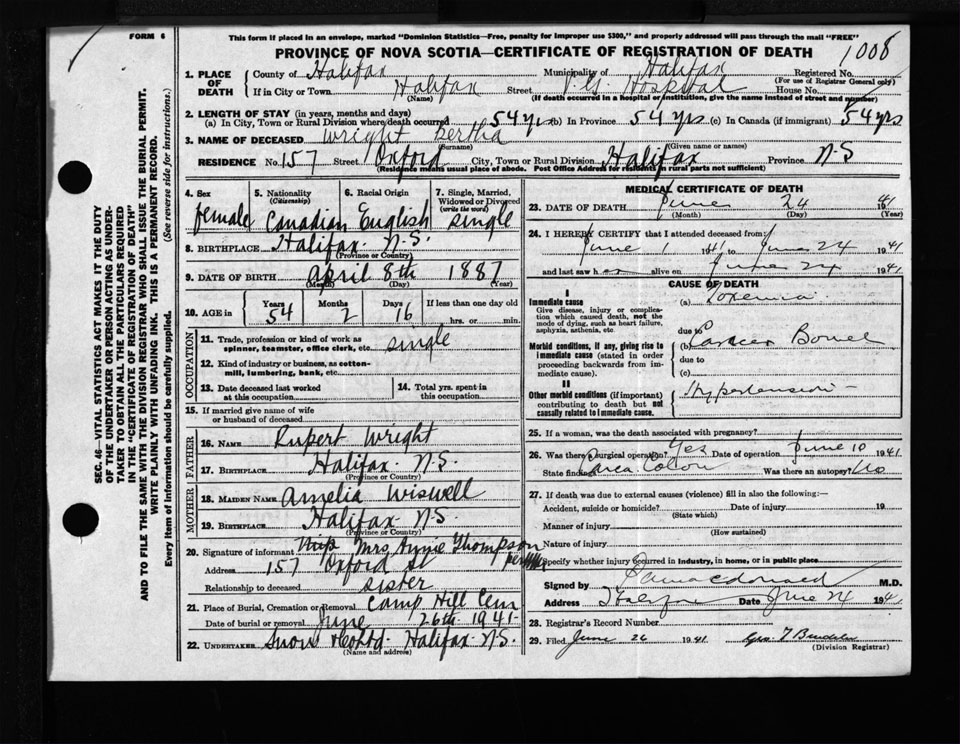 FORM 6
This form if placed in an envelope, marked "Dominion Statistics—Free, penalty for improper use $300," and properly addressed will pass through the mail "FREE"
PROVINCE OF NOVA SCOTIA—CERTIFICATE OF REGISTRATION OF DEATH
1008
1. PLACE OF DEATH
County of Halifax Municipality of Halifax Registered No.
(For use of Registrar General only)
If in City or Town Halifax Street V. G. Hospital House No.
(Name) (If death occurred in a hospital or institution, give the name instead of street and number)
2. LENGTH OF STAY (in years, months and days)
(a) In City, Town or Rural Division where death occurred 54 yrs (b) In Province 54 yrs (c) In Canada (if immigrant) 54 yrs
3. NAME OF DECEASED Wright Bertha
(Surname) (Given name or names)
RESIDENCE No. 157 Street Oxford City, Town or Rural Division Halifax Province N S
(Residence means usual place of abode. Post Office Address for residents in rural parts not sufficient)
4. Sex female
5. Nationality (Citizenship) Canadian
6. Racial Origin English
7. Single, Married, Widowed or Divorced (write the word) single
8. BIRTHPLACE Halifax N.S.
(Province or Country)
9. DATE OF BIRTH April 8th 1887
(Month) (Day) (Year)
10. AGE in Years 54 Months 2 Days 16 If less than one day old hrs. or min.
OCCUPATION
11. Trade, profession or kind of work as spinner, teamster, office clerk, etc. single
12. Kind of industry or business, as cotton-mill, lumbering, bank, etc.
13. Date deceased last worked at this occupation
14. Total yrs. spent in this occupation
15. If married give name of wife or husband of deceased
FATHER
16. NAME Rupert Wright
17. BIRTHPLACE Halifax N.S.
(Province or Country)
MOTHER
18. MAIDEN NAME Amelia Wiswell
19. BIRTHPLACE Halifax N.S.
(Province or Country)
20. Signature of informant Mrs Annie Thompson
Address 157 Oxford St
Relationship to deceased sister
21. Place of Burial, Cremation or Removal Camp Hill Cem
Date of burial or removal June 26th 1941
22. UNDERTAKER Snow & Co Ltd Halifax N.S.
(Name and address)
MEDICAL CERTIFICATE OF DEATH
23. DATE OF DEATH June 24 1941
(Month) (Day) (Year)
24. I HEREBY CERTIFY that I attended deceased from:
June 1 1941 June 24 1941
and last saw h er alive on June 24 1941
CAUSE OF DEATH
I
Immediate cause (a) Toxemia
Give disease, injury or complication which caused death, not the mode of dying, such as heart failure, asphyxia, asthenia, etc.
due to
Morbid conditions, if any, giving rise to immediate cause (stated in order proceeding backwards from immediate cause). (b) Cancer Bowel
due to
(c)
II
Other morbid conditions (if important) contributing to death but not causally related to immediate cause. Hypertension
25. If a woman, was the death associated with pregnancy?
26. Was there a surgical operation? Yes Date of operation June 10 1941
State findings Colon Was there an autopsy? No
27. If death was due to external causes (violence) fill in also the following:—
Accident, suicide or homicide? Date of injury 19
(State which)
Manner of injury
(How sustained)
Nature of injury
Specify whether injury occurred in Industry, in home, or in public place
Signed by M.D.
Address Halifax Date June 24 1941
28. Registrar's Record Number
29. Filed June 26 1941
(Division Registrar)
SEC. 46—VITAL STATISTICS ACT MAKES IT THE DUTY
OF THE UNDERTAKER OR PERSON ACTING AS UNDER-
TAKER TO OBTAIN ALL THE PARTICULARS REQUIRED
IN THE "CERTIFICATE OF REGISTRATION OF DEATH"
AND TO FILE THE SAME WITH THE DIVISION REGISTRAR WHO SHALL ISSUE THE BURIAL PERMIT.
WRITE PLAINLY WITH UNFADING INK. THIS IS A PERMANENT RECORD.
Every item of Information should be carefully supplied. (See reverse side for instructions.)